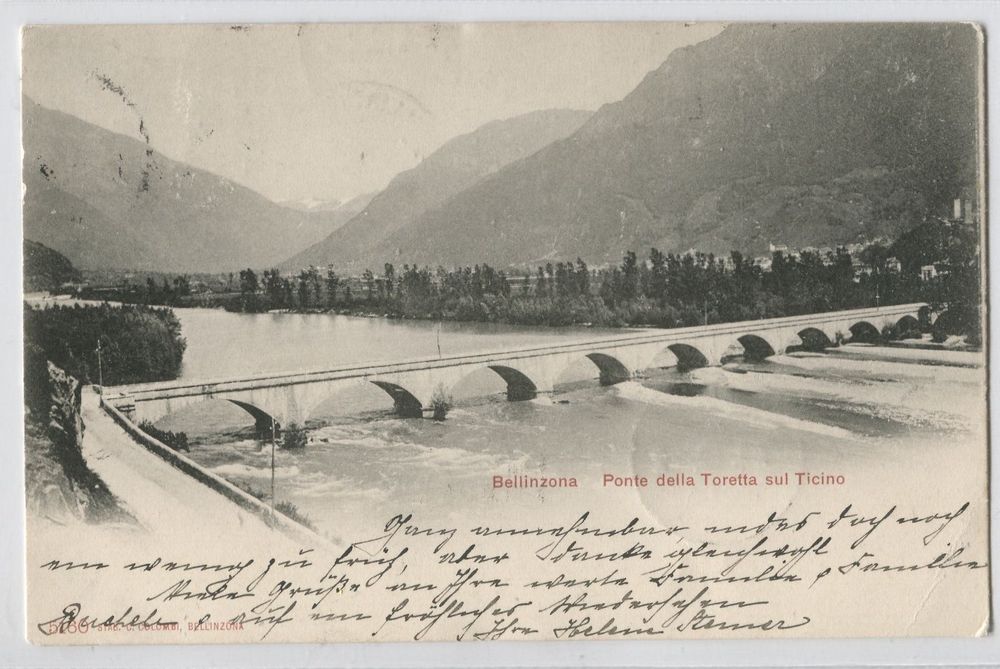 Bellinzona Ponte della Toretta sul Ticino
Ganz annehmbar, indes doch noch
ein wenig zu früh, aber danke gleichwohl
Viele Grüße an Ihre werte Familie & Familie
& auf ein fröhliches Wiedersehen
Ihre Helene
5260 STAB. C. COLOMBI, BELLINZONA